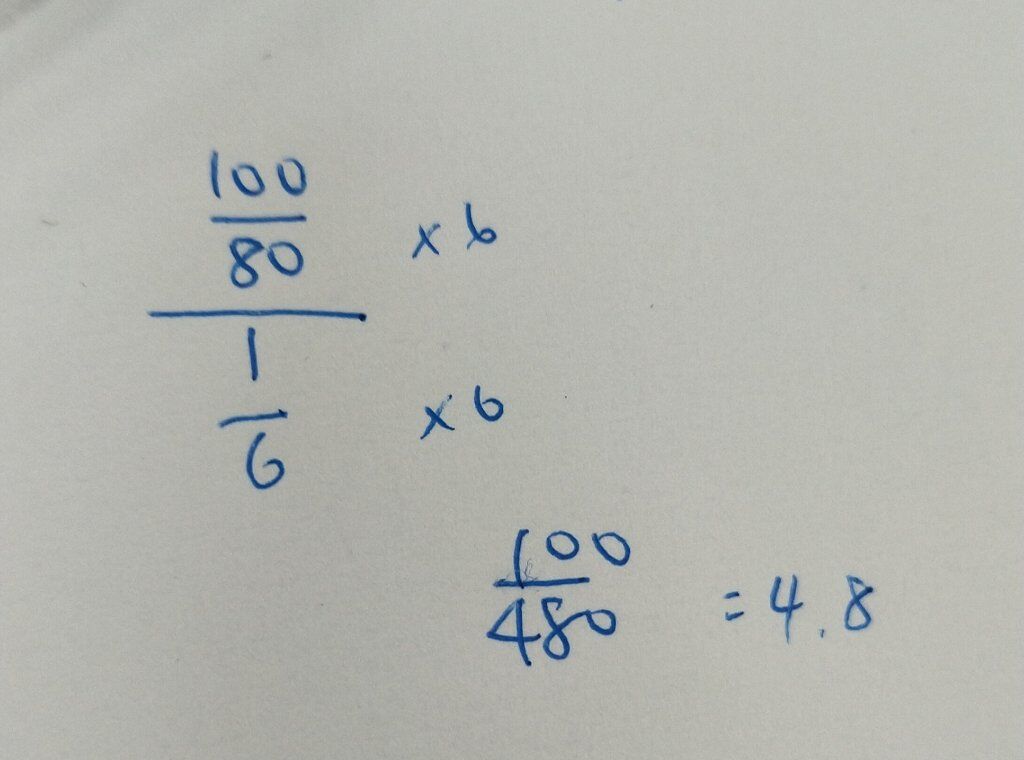 100
80
× 6
1
6
× 6
100
480
= 4.8